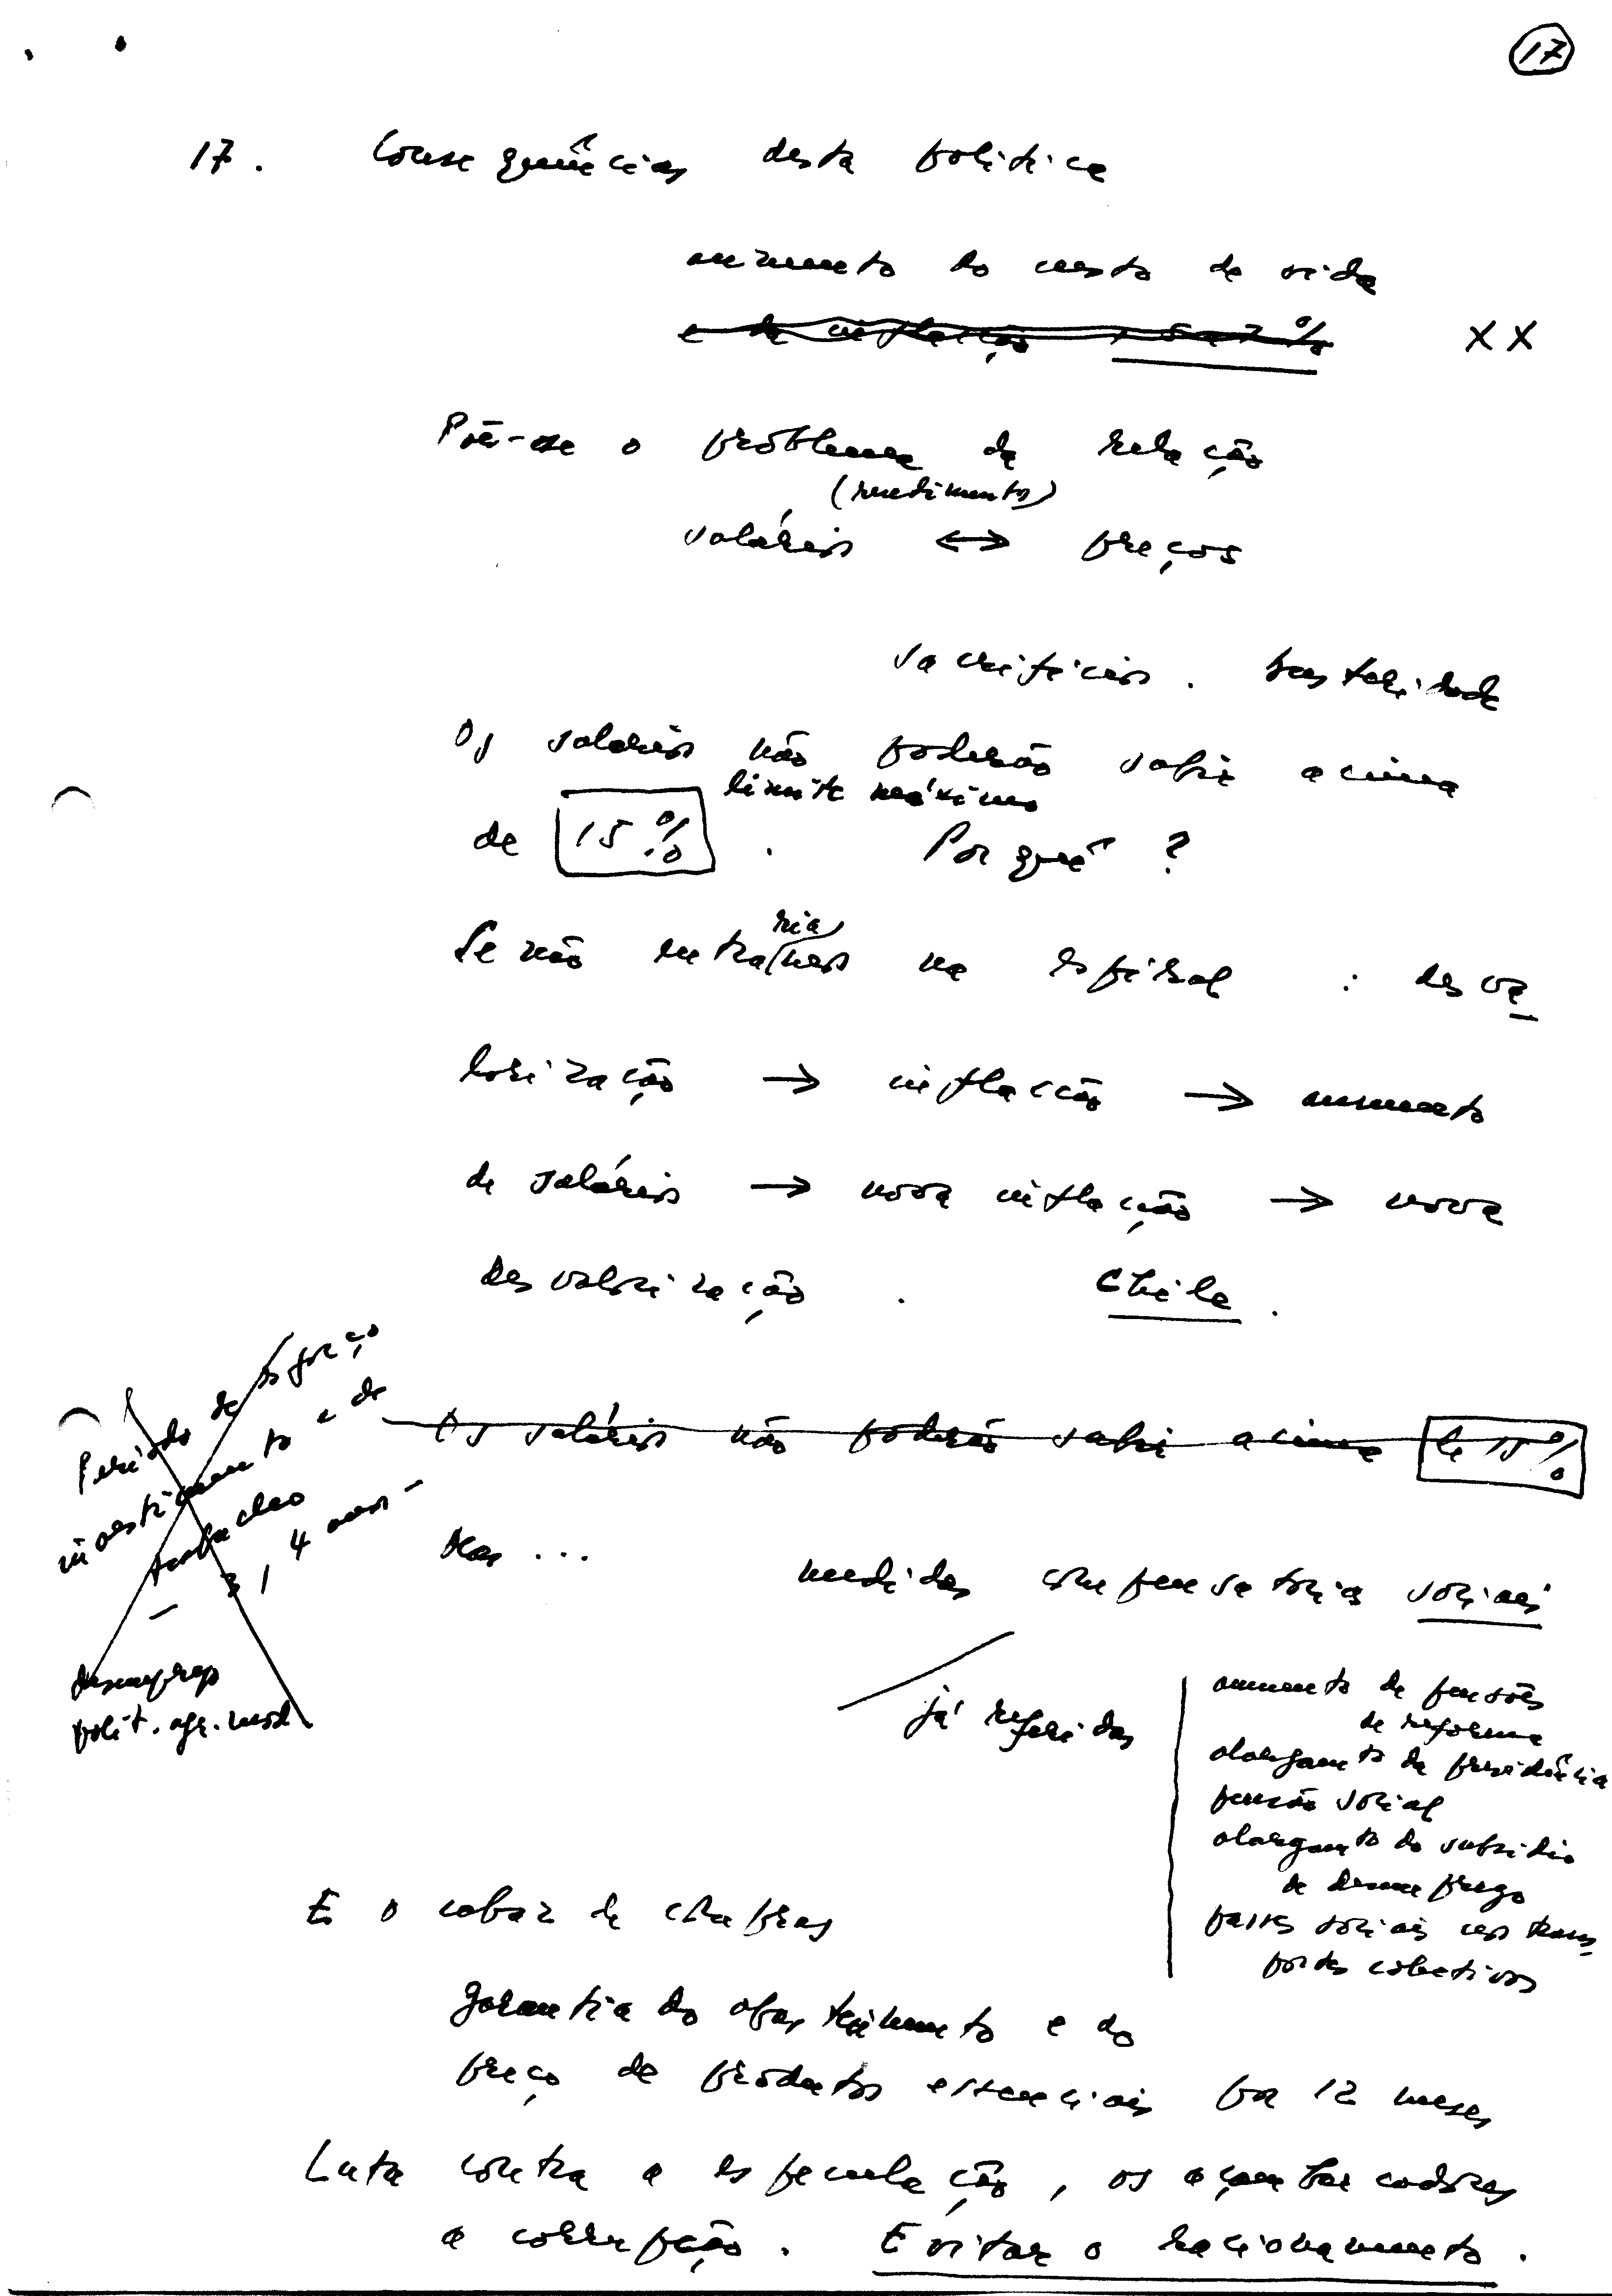 17
17. Consequências desta política
aumento do custo de vida
e da inflação + 5 a 7 %
X X
Põe-se o problema da relação
(rendimentos)
salários ↔ preços
sacrifícios. Austeridade
Os salários não poderão subir acima
limite máximo
de 15 % . Porquê ?
Se não entraríamos na espiral : desva
lorização → inflacção → aumento
de salários → nova inflação → nova
desvalorização . Chile .
Período de esforço
investimento e de
trabalho
– 3, 4 anos –
desemprego
polit. agr. mod
Os salários não poderão subir acima de 15 %
Mas ...
medidas compensatórias sociais
já referidas
aumento de pensões
de reforma
alargamento da previdência
pensão social
alargamento do subsídio
de desemprego
passes sociais nos trans
portes colectivos
E o cabaz de compras
garantia do abastecimento e do
preço de produtos essenciais por 12 meses
Luta contra a especulação, os açambarcadores
a corrupção. Evitar o racionamento.